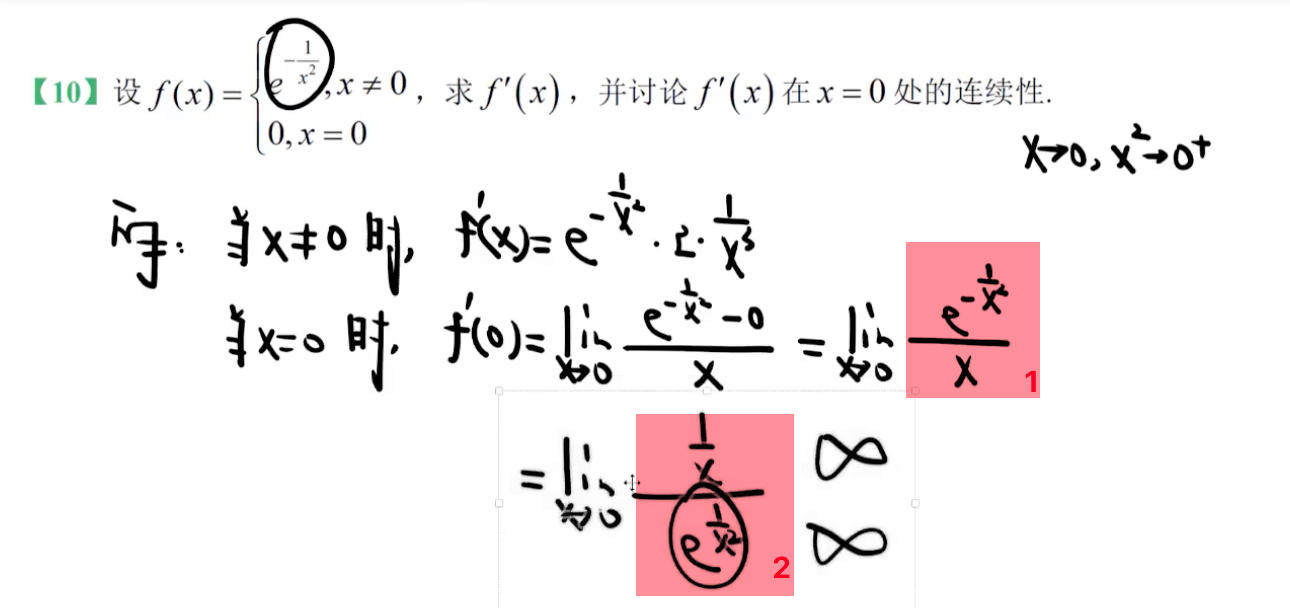 【10】设 f(x) = { e^{-1/x²}, x ≠ 0
0, x = 0 ，求 f′(x)，并讨论 f′(x) 在 x = 0 处的连续性.
x→0, x²→0⁺
解: 当 x≠0 时, f'(x) = e^{-1/x²} · 2 · 1/x³
当 x=0 时, f'(0) = lim_{x→0} (e^{-1/x²} - 0)/x = lim_{x→0} e^{-1/x²}/x 1
= lim_{x→0} (1/x)/(e^{1/x²}) 2 ∞ ∞